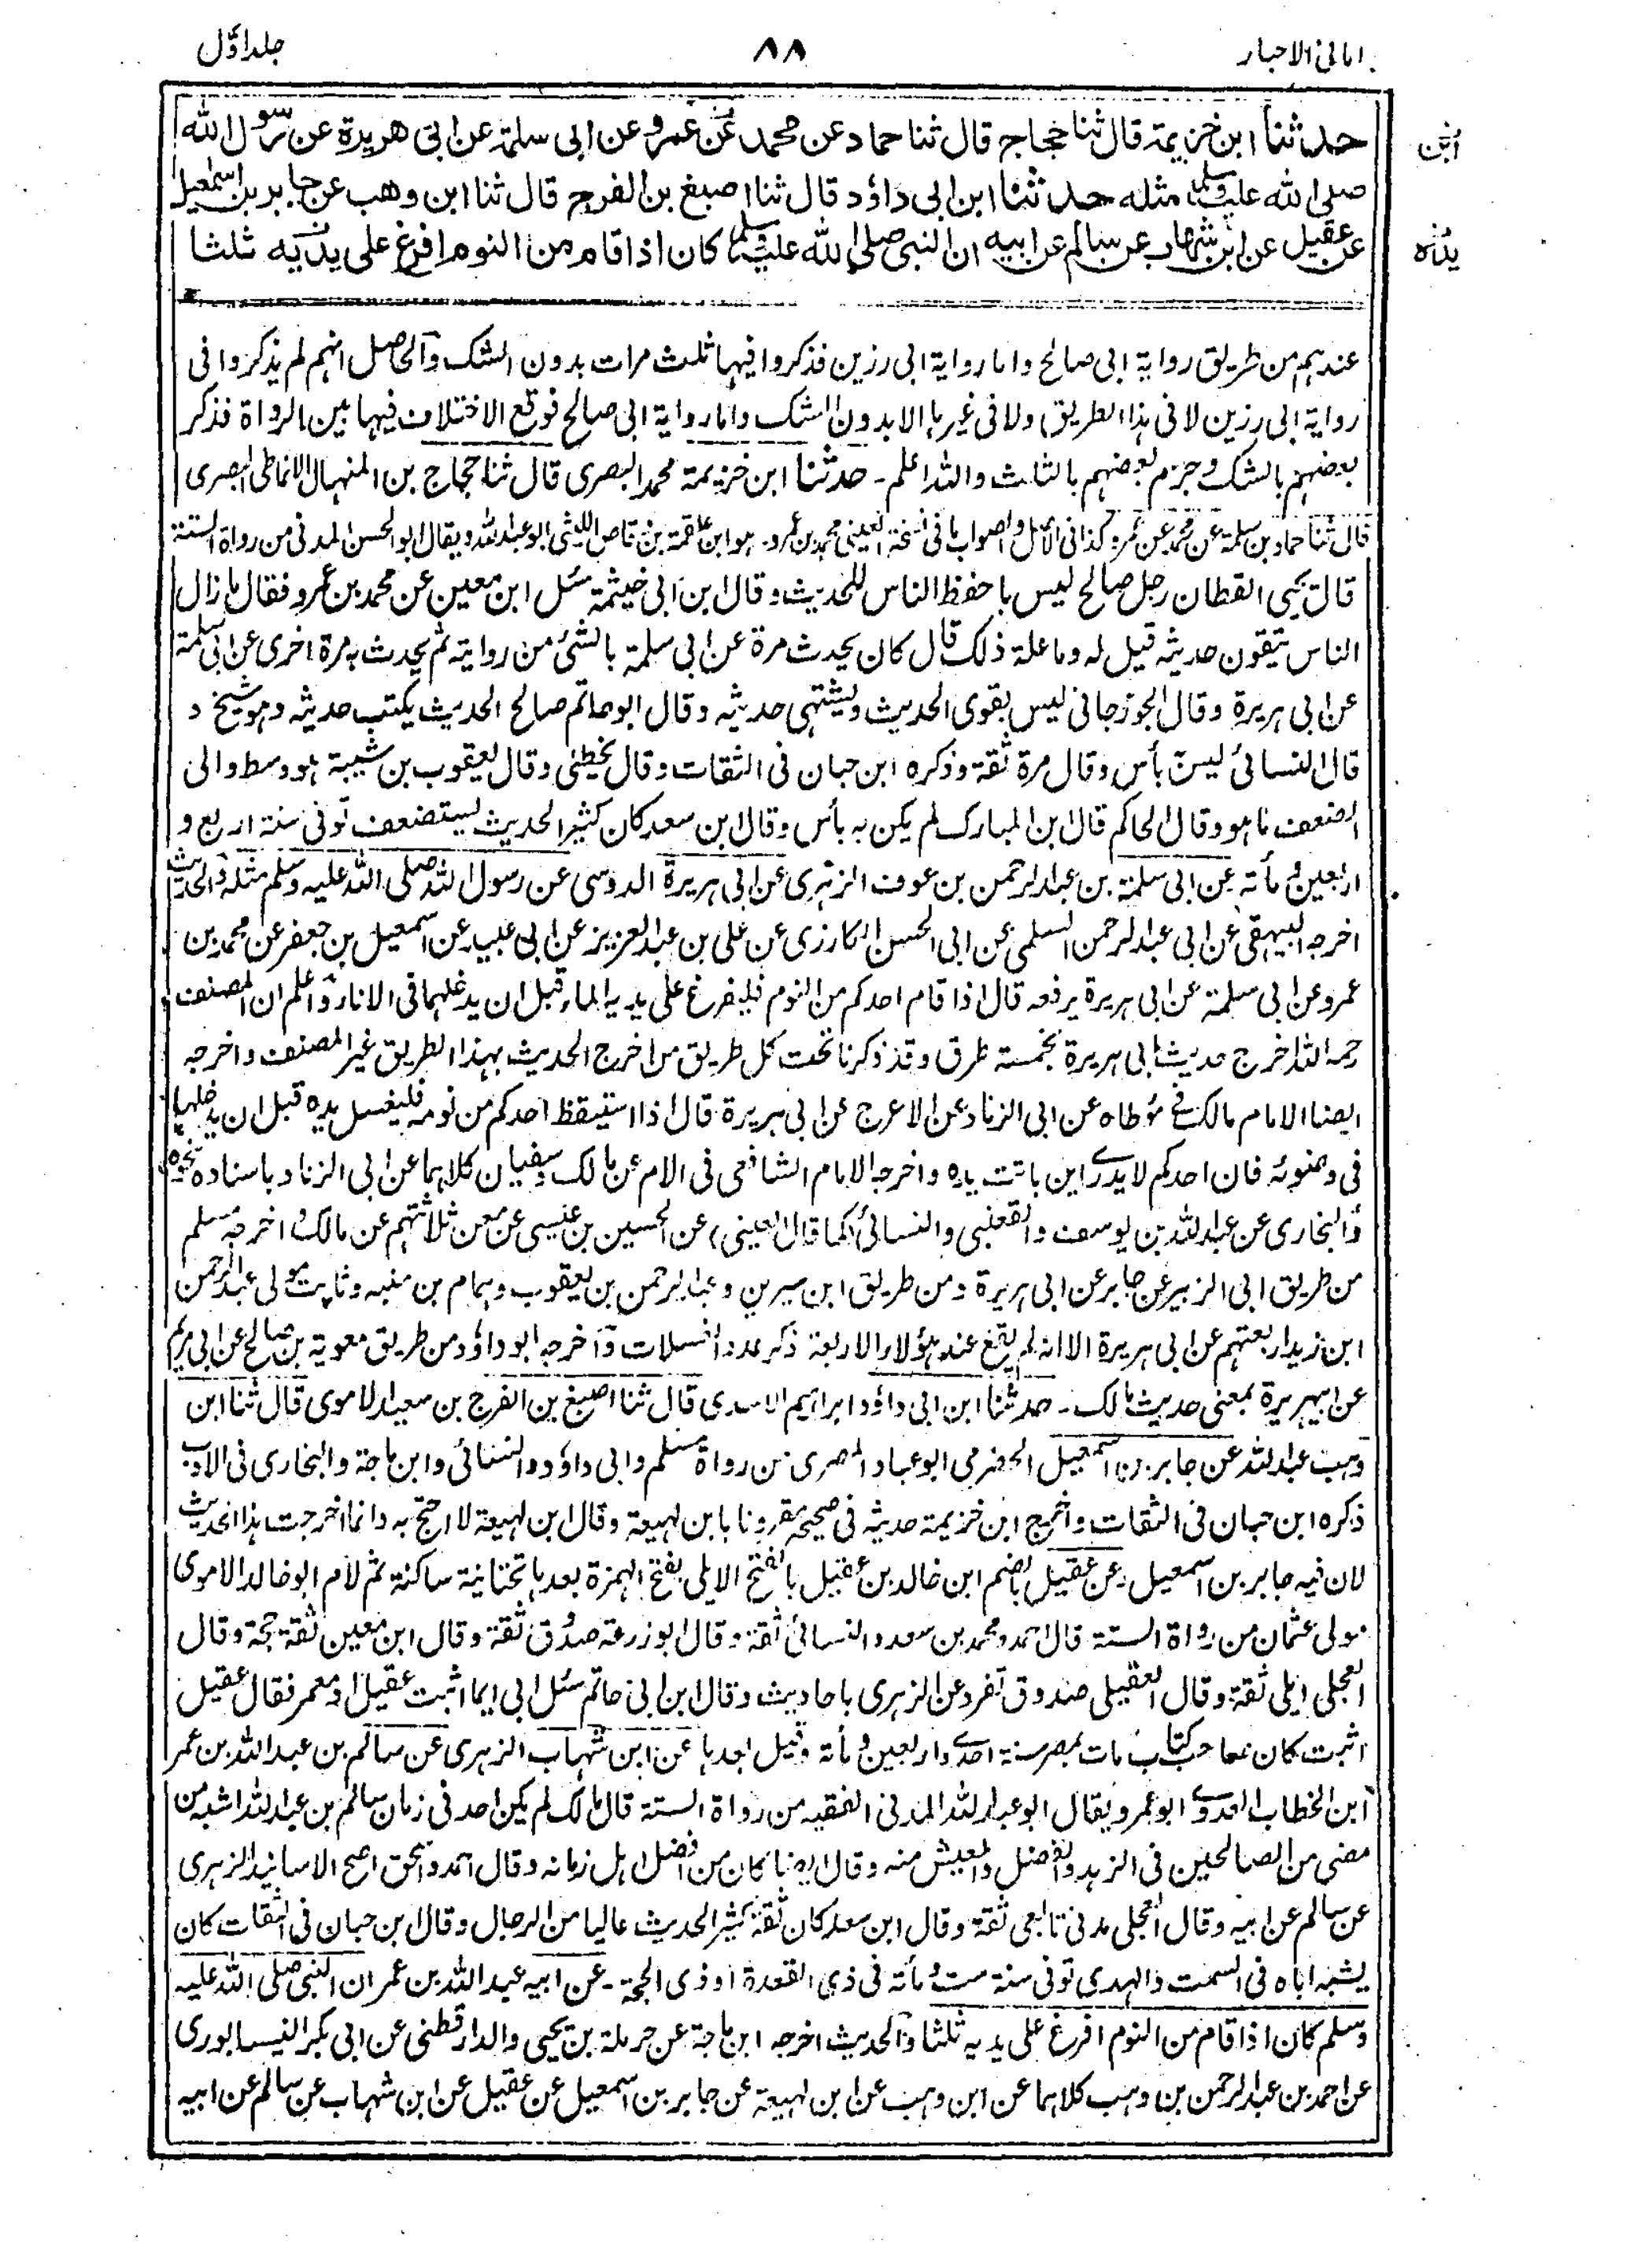 امانی الاحبار
۸۸
جلد اوّل
حدثنا ابن خزيمة قال ثنا حجاج قال ثنا حماد عن محمد عن عمرو عن ابی سلمة عن ابی هريرة عن رسول الله
ابن
صلی الله علیه وسلم مثله حدثنا ابن ابی داؤد قال ثنا اصبغ بن الفرج قال ثنا ابن وهب عن جابر بن اسمعيل
عن عقيل عن ابن شهاب عن سالم عن ابيه ان النبی صلی الله علیه وسلم كان اذا قام من النوم افرغ علی يديه ثلثا
يده
عندهم من طريق رواية ابی صالح واما رواية ابی رزين فذكروا فيها ثلث مرات بدون الشك والحاصل انهم لم يذكروا فی
رواية ابی رزين لا فی هذا الطريق ولا فی غيرها الا بدون الشك واما رواية ابی صالح فوقع الاختلاف فيها بين الرواة فذكر
بعضهم بالشك وجزم بعضهم بالثلث والله اعلم۔ حدثنا ابن خزيمة محمد البصری قال ثنا حجاج بن المنهال الانماطی البصری
قال ثنا حماد بن سلمة عن محمد عن عمرو كذا فی الاصل والصواب ما فی نسخة العينی محمد بن عمرو۔ هو ابن علقمة بن وقاص الليثی ابو عبدالله ويقال ابو الحسن المدنی من رواة الستة
قال يحيی القطان رجل صالح ليس باحفظ الناس للحديث وقال ابن ابی خيثمة سئل ابن معين عن محمد بن عمرو فقال ما زال
الناس يتقون حديثه قيل له وما علة ذلك قال كان يحدث مرة عن ابی سلمة بالشئ من روايته ثم يحدث به مرة اخری عن ابی سلمة
عن ابی هريرة وقال الجوزجانی ليس بقوی الحديث ويشتهی حديثه وقال ابو حاتم صالح الحديث يكتب حديثه وهو شيخ و
قال النسائی ليس به بأس وقال مرة ثقة وذكره ابن حبان فی الثقات وقال يخطئ وقال يعقوب بن شيبة هو وسط والی
الضعف ما هو وقال الحاكم قال ابن المبارك لم يكن به بأس وقال ابن سعد كان كثير الحديث يستضعف توفی سنة اربع و
اربعين ومأة عن ابی سلمة بن عبدالرحمن بن عوف الزهری عن ابی هريرة الدوسی عن رسول الله صلی الله عليه وسلم مثله والحديث
اخرجه البيهقی عن ابی عبدالرحمن السلمی عن ابی الحسن الكارزی عن علی بن عبدالعزيز عن ابی عبيد عن اسمعيل بن جعفر عن محمد بن
عمرو عن ابی سلمة عن ابی هريرة يرفعه قال اذا قام احدكم من النوم فليفرغ علی يديه الماء قبل ان يدخلهما فی الاناء واعلم ان المصنف
رحمه الله اخرج حديث ابی هريرة بخمسة طرق وقد ذكرنا تحت كل طريق من اخرج الحديث بهذا الطريق غير المصنف واخرجه
ايضا الامام مالك فی مؤطاه عن ابی الزناد عن الاعرج عن ابی هريرة قال اذا استيقظ احدكم من نومه فليغسل يده قبل ان يدخلها
فی وضوئه فان احدكم لا يدری اين باتت يده واخرجه الامام الشافعی فی الام عن مالك وسفيان كلاهما عن ابی الزناد باسناده نحوه
والبخاری عن عبدالله بن يوسف والقعنبی والنسائی (كما قال العينی) عن الحسين بن عيسی عن معن ثلاثتهم عن مالك واخرجه مسلم
من طريق ابی الزبير عن جابر عن ابی هريرة ومن طريق ابن سيرين وعبدالرحمن بن يعقوب وهمام بن منبه وثابت مولی عبدالرحمن
ابن زيد اربعتهم عن ابی هريرة الا انه لم يقع عند هؤلاء الاربعة ذكر عدد الغسلات واخرجه ابو داؤد من طريق معوية بن صالح عن ابی مريم
عن ابی هريرة بمعنی حديث مالك۔ حدثنا ابن ابی داؤد ابراهيم الاسدی قال ثنا اصبغ بن الفرج بن سعيد الاموی قال ثنا ابن
وهب عبدالله عن جابر بن اسمعيل الحضرمی ابو عباد المصری من رواة مسلم وابی داؤد والنسائی وابن ماجة والبخاری فی الادب
ذكره ابن حبان فی الثقات واخرج ابن خزيمة حديثه فی صحيحه مقرونا بابن لهيعة وقال ابن لهيعة لا احتج به وانما اخرجت هذا الحديث
لان فيه جابر بن اسمعيل۔ عن عقيل بالضم ابن خالد بن عقيل بالفتح الايلی بفتح الهمزة بعدها تحتانية ساكنة ثم لام ابو خالد الاموی
مولی عثمان من رواة الستة قال احمد ومحمد بن سعد والنسائی ثقة وقال ابو زرعة صدوق ثقة وقال ابن معين ثقة حجة وقال
العجلی ايلی ثقة وقال العقيلی صدوق تفرد عن الزهری باحاديث وقال ابن ابی حاتم سئل ابی ايما اثبت عقيل او معمر فقال عقيل
اثبت كان صاحب كتاب مات بمصر سنة احدی واربعين ومأة وقيل بعدها عن ابن شهاب الزهری عن سالم بن عبدالله بن عمر
ابن الخطاب العدوی ابو عمر ويقال ابو عبدالله المدنی الفقيه من رواة الستة قال مالك لم يكن احد فی زمان سالم بن عبدالله اشبه من
مضی من الصالحين فی الزهد والفضل والعيش منه وقال ايضا كان من افضل اهل زمانه وقال احمد واسحق اصح الاسانيد الزهری
عن سالم عن ابيه وقال العجلی مدنی تابعی ثقة وقال ابن سعد كان ثقة كثير الحديث عاليا من الرجال وقال ابن حبان فی الثقات كان
يشبه اباه فی السمت والهدی توفی سنة ست ومأة فی ذی القعدة او ذی الحجة۔ عن ابيه عبدالله بن عمر ان النبی صلی الله عليه
وسلم كان اذا قام من النوم افرغ علی يديه ثلثا والحديث اخرجه ابن ماجة عن حرملة بن يحيی والدارقطنی عن ابی بكر النيسابوری
عن احمد بن عبدالرحمن بن وهب كلاهما عن ابن وهب عن ابن لهيعة عن جابر بن اسمعيل عن عقيل عن ابن شهاب عن سالم عن ابيه